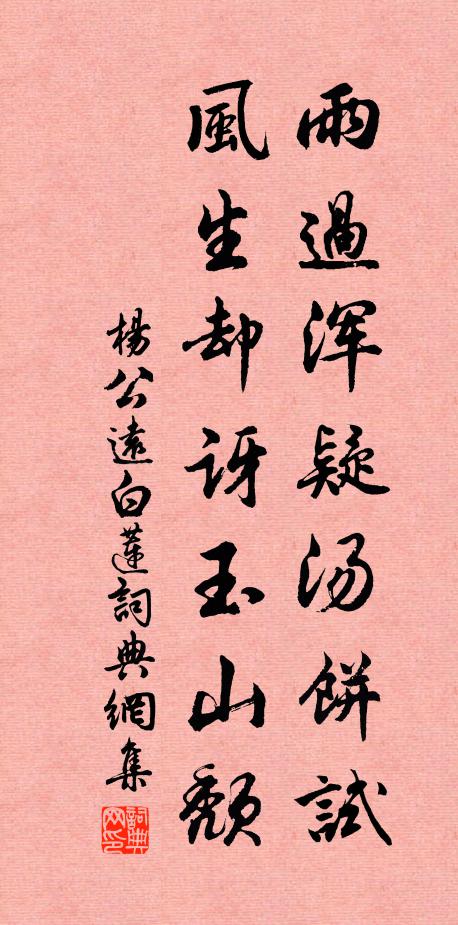 雨過浑疑汤餅試
風生却訝玉山頹
楊公遠白蓮詞典網集
詞典网印